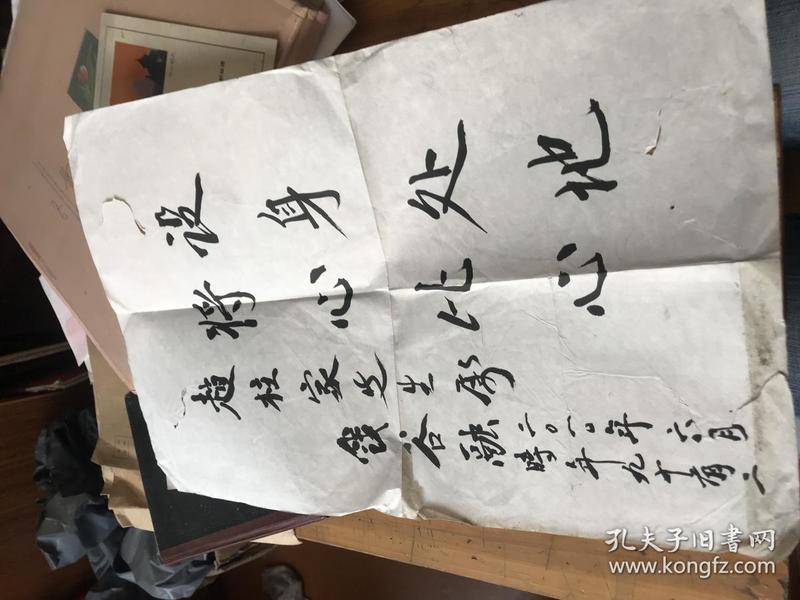 设身处地
将心比心
趙柱家先生属
錢谷融
二〇一〇年六月
時年九十有二
孔夫子旧书网
www.kongfz.com